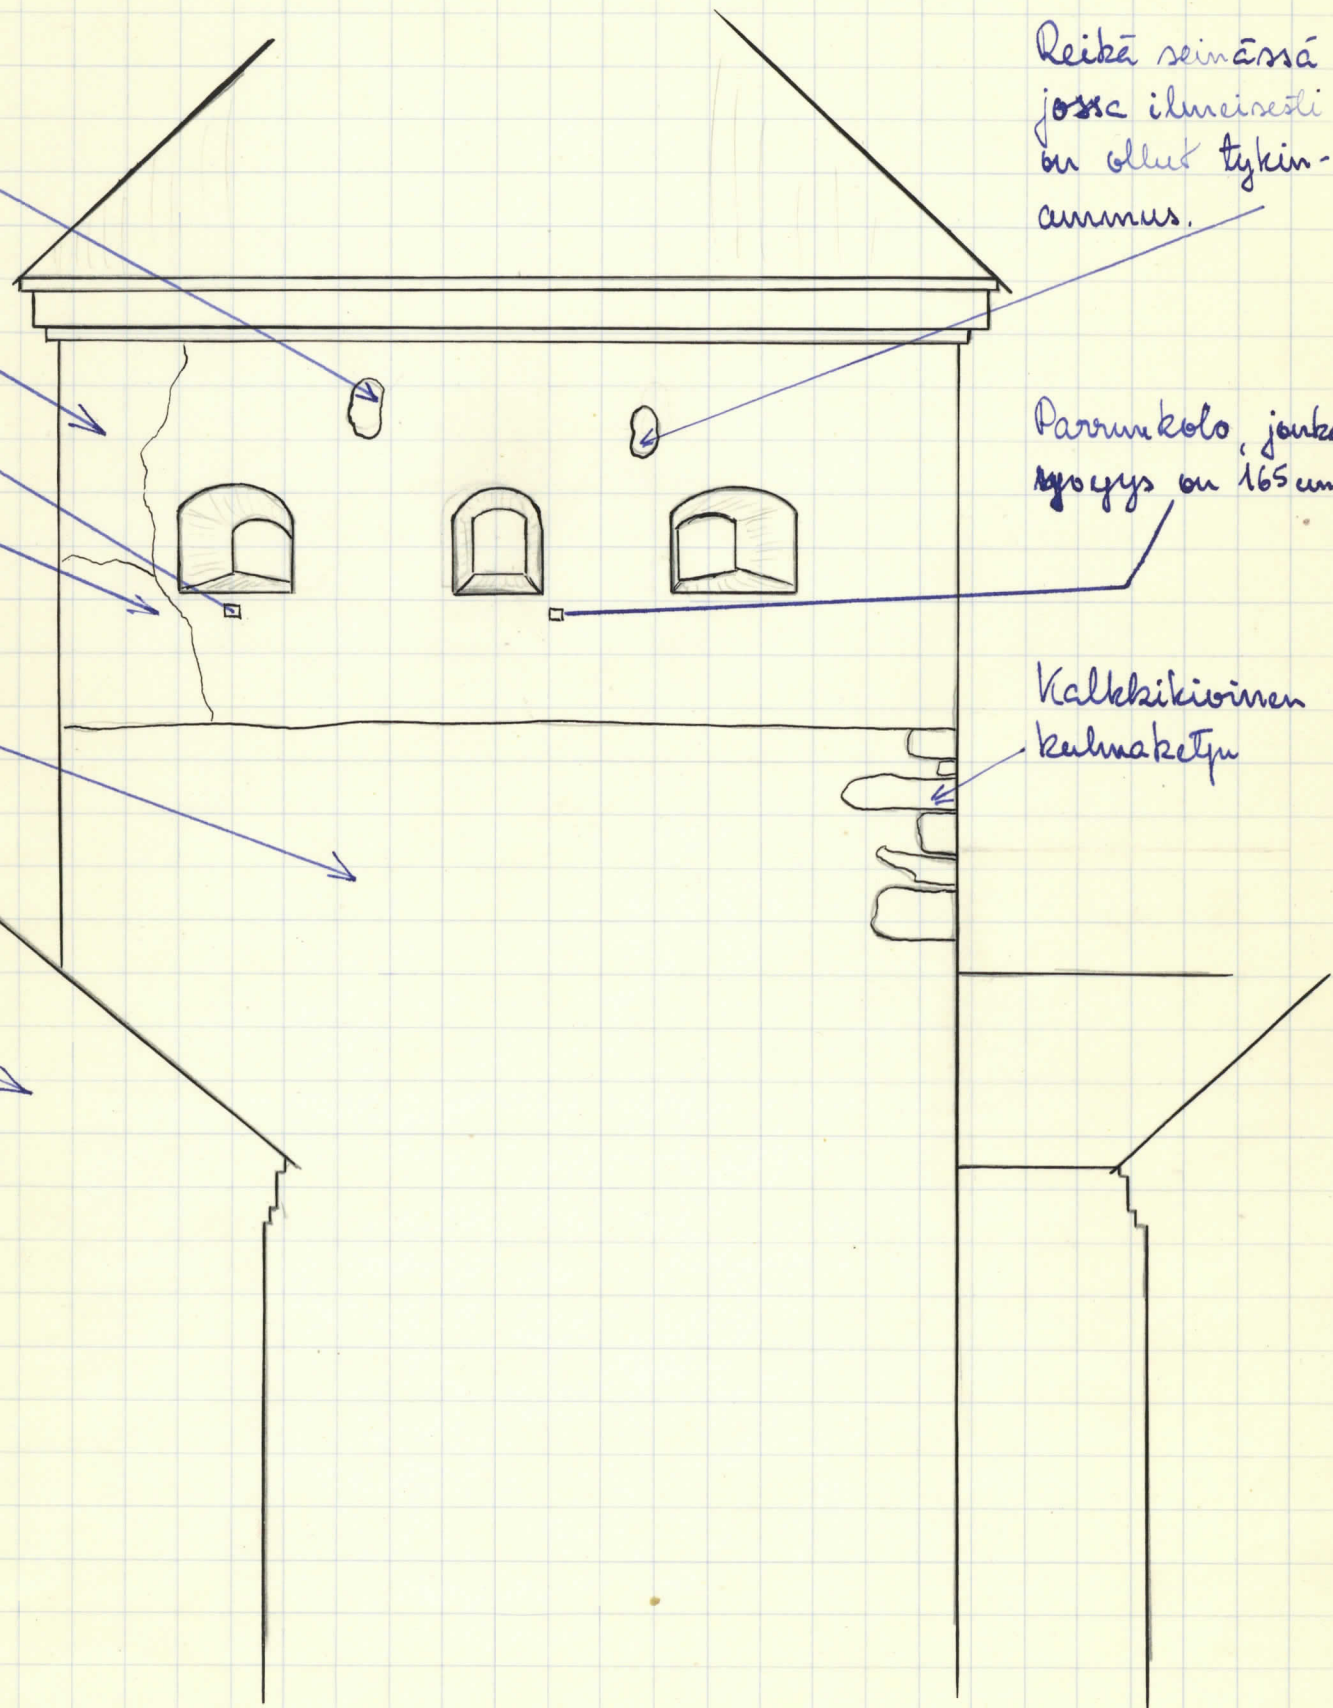 Reikä seinässä
jossa ilmeisesti
on ollut tykin-
ammus.
Parrunkolo, jonka
syvyys on 165 cm
Kalkkikivinen
kulmaketju